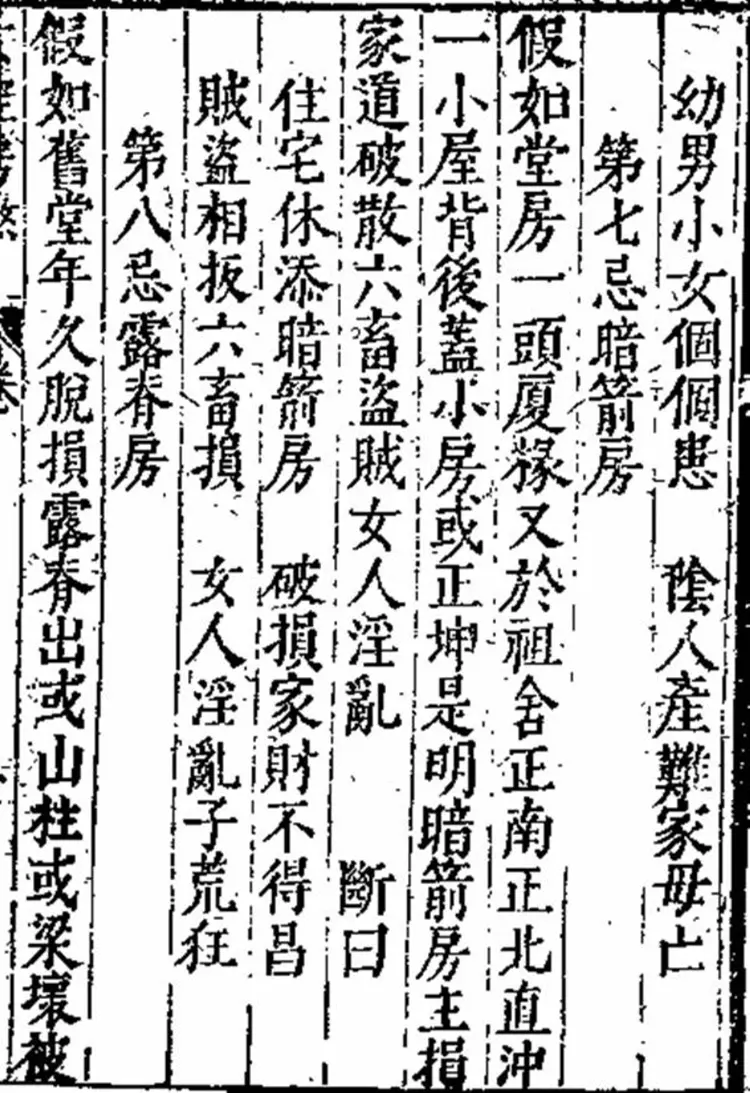 幼男小女個個患　陰人產難家母亡
第七忌暗箭房
假如堂房一頭厦椽又於祖舍正南正北直沖
一小屋背後蓋小房或正坤是明暗箭房主損
家道破散六畜盜賊女人淫亂　斷曰
住宅休添暗箭房　破損家財不得昌
賊盜相扳六畜損　女人淫亂子荒狂
第八忌露脊房
假如舊堂年久脫損露脊出或山柱或梁壞被